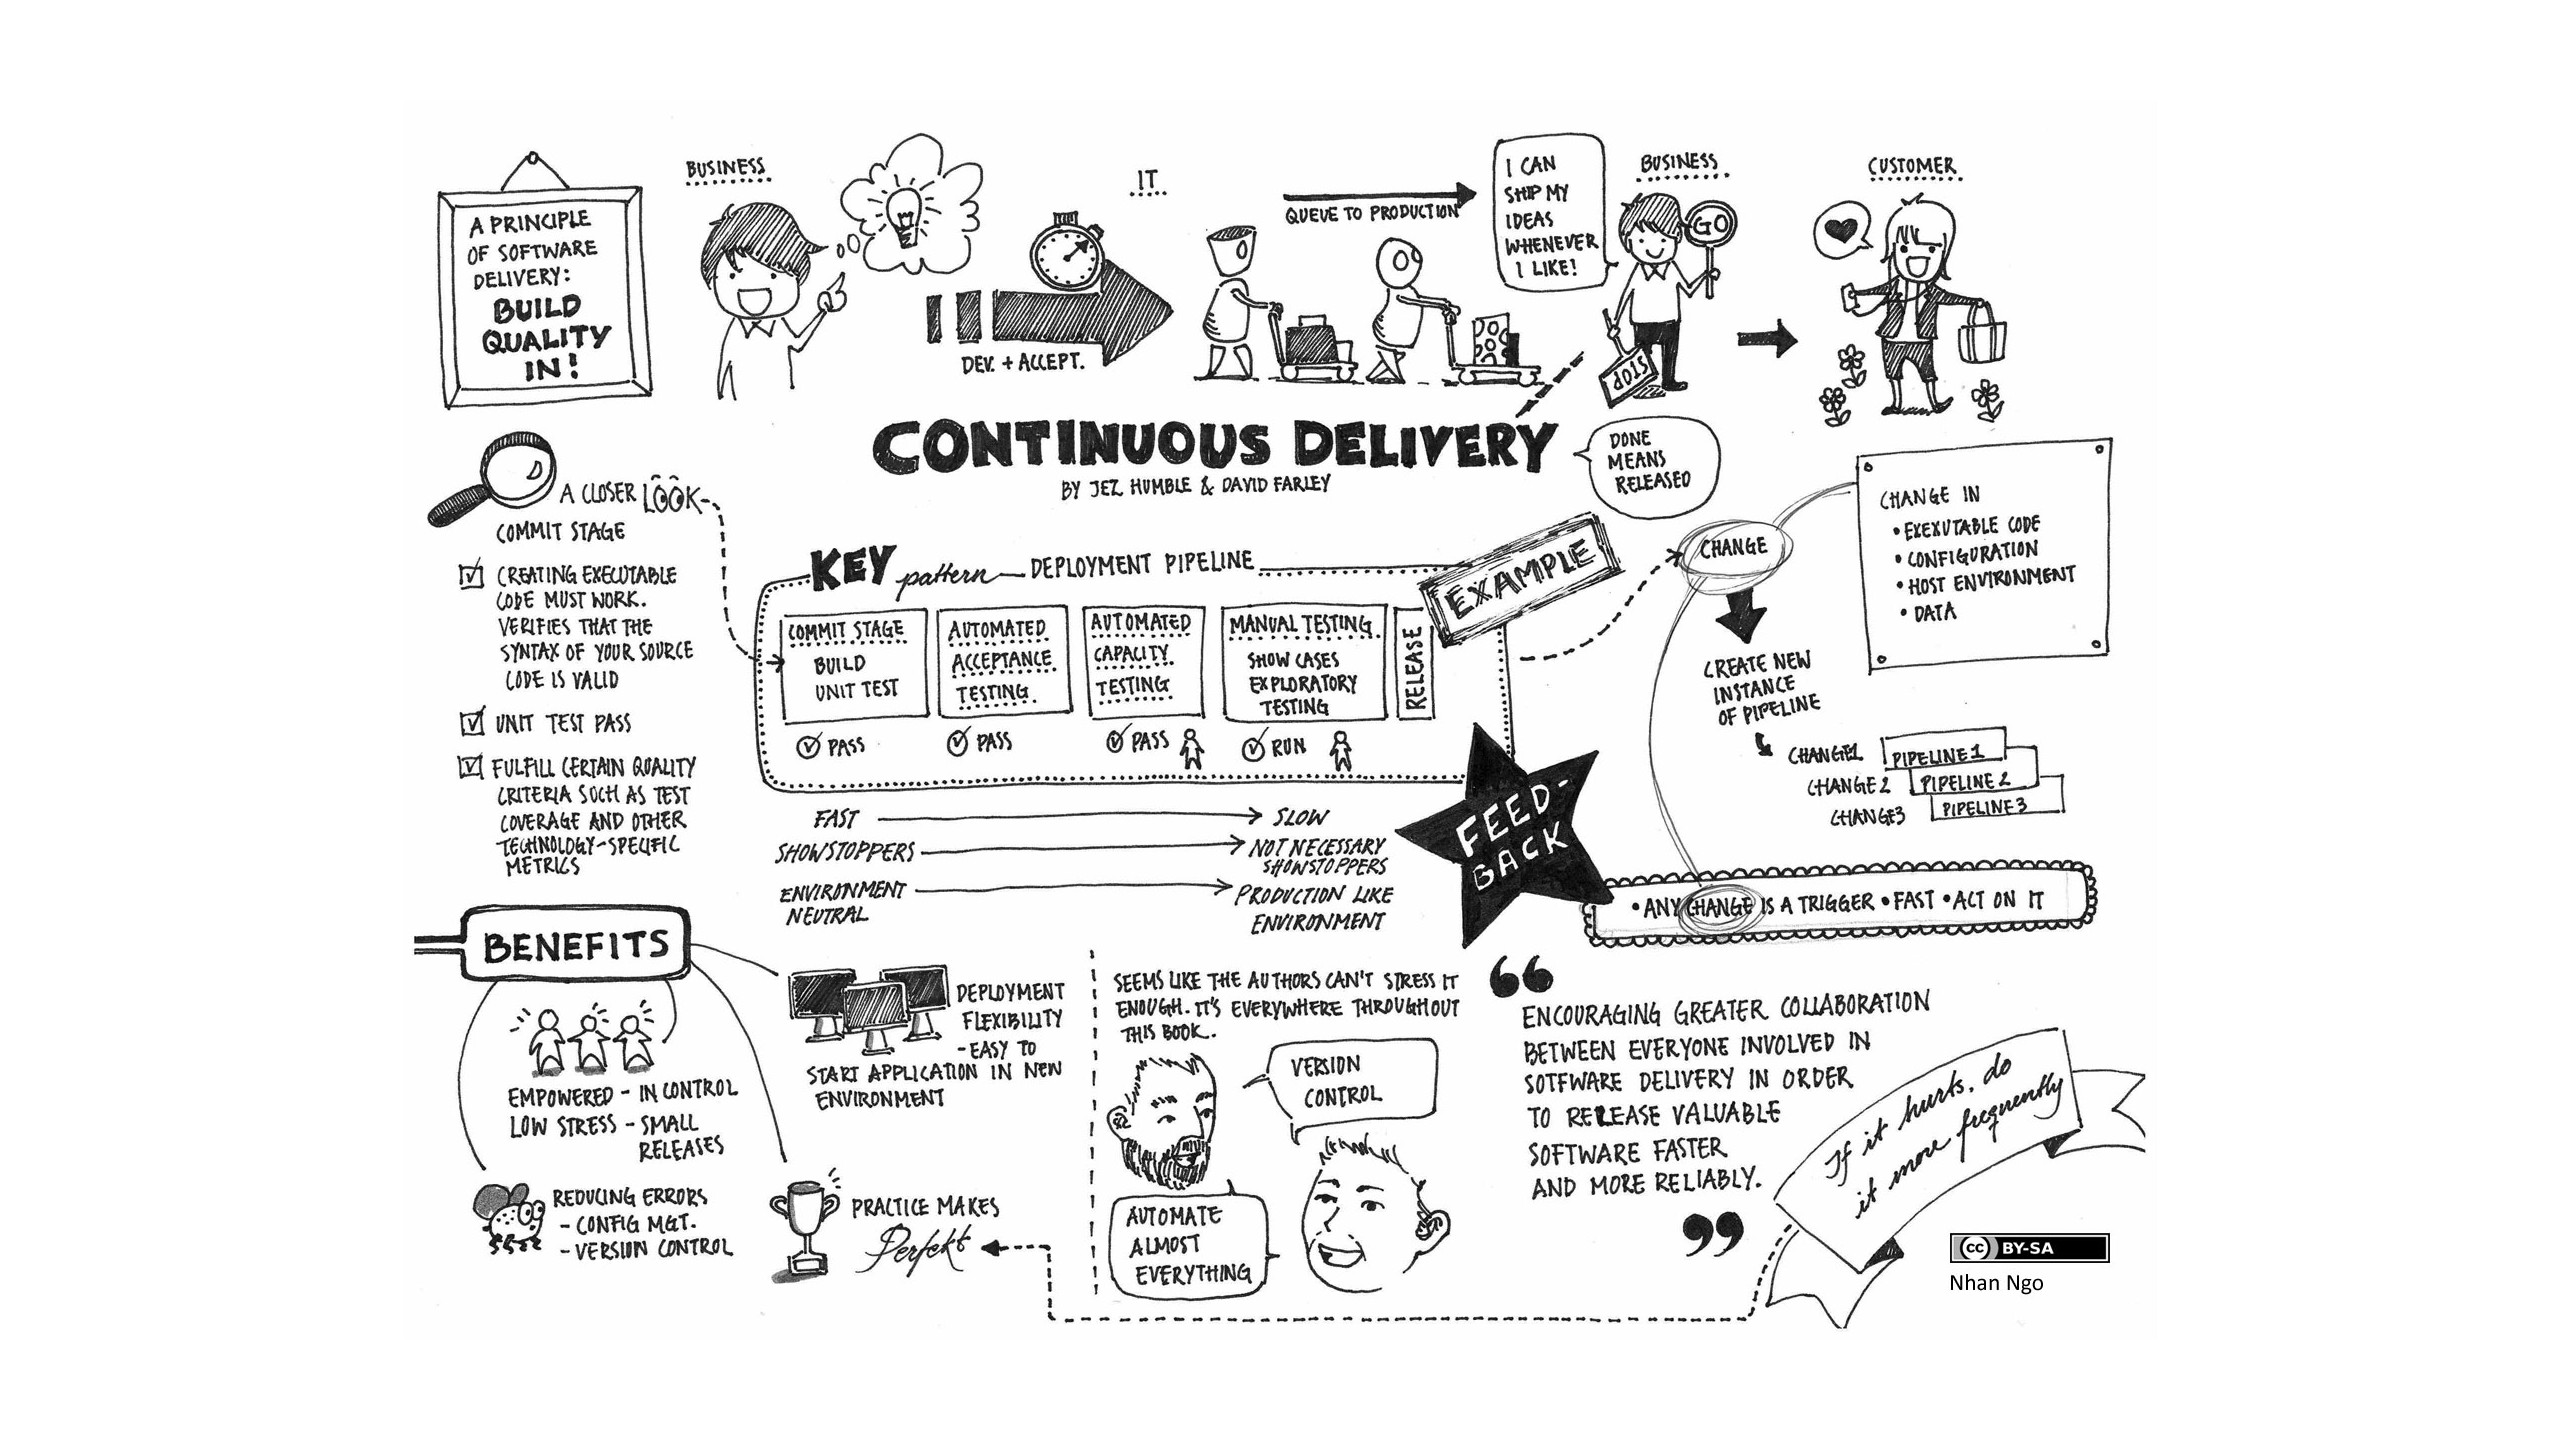 A PRINCIPLE
OF SOFTWARE
DELIVERY:
BUILD
QUALITY
IN!
BUSINESS
DEV. + ACCEPT.
IT
QUEUE TO PRODUCTION
I CAN
SHIP MY
IDEAS
WHENEVER
I LIKE!
BUSINESS
GO
STOP
CUSTOMER
CONTINUOUS DELIVERY
BY JEZ HUMBLE & DAVID FARLEY
DONE
MEANS
RELEASED
A CLOSER LOOK
COMMIT STAGE
CREATING EXECUTABLE
CODE MUST WORK.
VERIFIES THAT THE
SYNTAX OF YOUR SOURCE
CODE IS VALID
UNIT TEST PASS
FULFILL CERTAIN QUALITY
CRITERIA SUCH AS TEST
COVERAGE AND OTHER
TECHNOLOGY-SPECIFIC
METRICS
KEY pattern DEPLOYMENT PIPELINE
EXAMPLE
COMMIT STAGE
BUILD
UNIT TEST
PASS
AUTOMATED
ACCEPTANCE
TESTING
PASS
AUTOMATED
CAPACITY
TESTING
PASS
MANUAL TESTING
SHOW CASES
EXPLORATORY
TESTING
RUN
RELEASE
FAST
SLOW
SHOWSTOPPERS
NOT NECESSARY
SHOWSTOPPERS
ENVIRONMENT
NEUTRAL
PRODUCTION LIKE
ENVIRONMENT
FEED-
BACK
CHANGE
CHANGE IN
• EXEXUTABLE CODE
• CONFIGURATION
• HOST ENVIRONMENT
• DATA
CREATE NEW
INSTANCE
OF PIPELINE
CHANGE1 PIPELINE1
CHANGE2 PIPELINE2
CHANGE3 PIPELINE3
• ANY CHANGE IS A TRIGGER • FAST • ACT ON IT
BENEFITS
EMPOWERED - IN CONTROL
LOW STRESS - SMALL
RELEASES
REDUCING ERRORS
- CONFIG MGT.
- VERSION CONTROL
DEPLOYMENT
FLEXIBILITY
- EASY TO
START APPLICATION IN NEW
ENVIRONMENT
PRACTICE MAKES
Perfekt
SEEMS LIKE THE AUTHORS CAN'T STRESS IT
ENOUGH. IT'S EVERYWHERE THROUGHOUT
THIS BOOK.
VERSION
CONTROL
AUTOMATE
ALMOST
EVERYTHING
“
ENCOURAGING GREATER COLLABORATION
BETWEEN EVERYONE INVOLVED IN
SOTFWARE DELIVERY IN ORDER
TO RELEASE VALUABLE
SOFTWARE FASTER
AND MORE RELIABLY.
”
If it hurts, do
it more frequently
cc BY-SA
Nhan Ngo